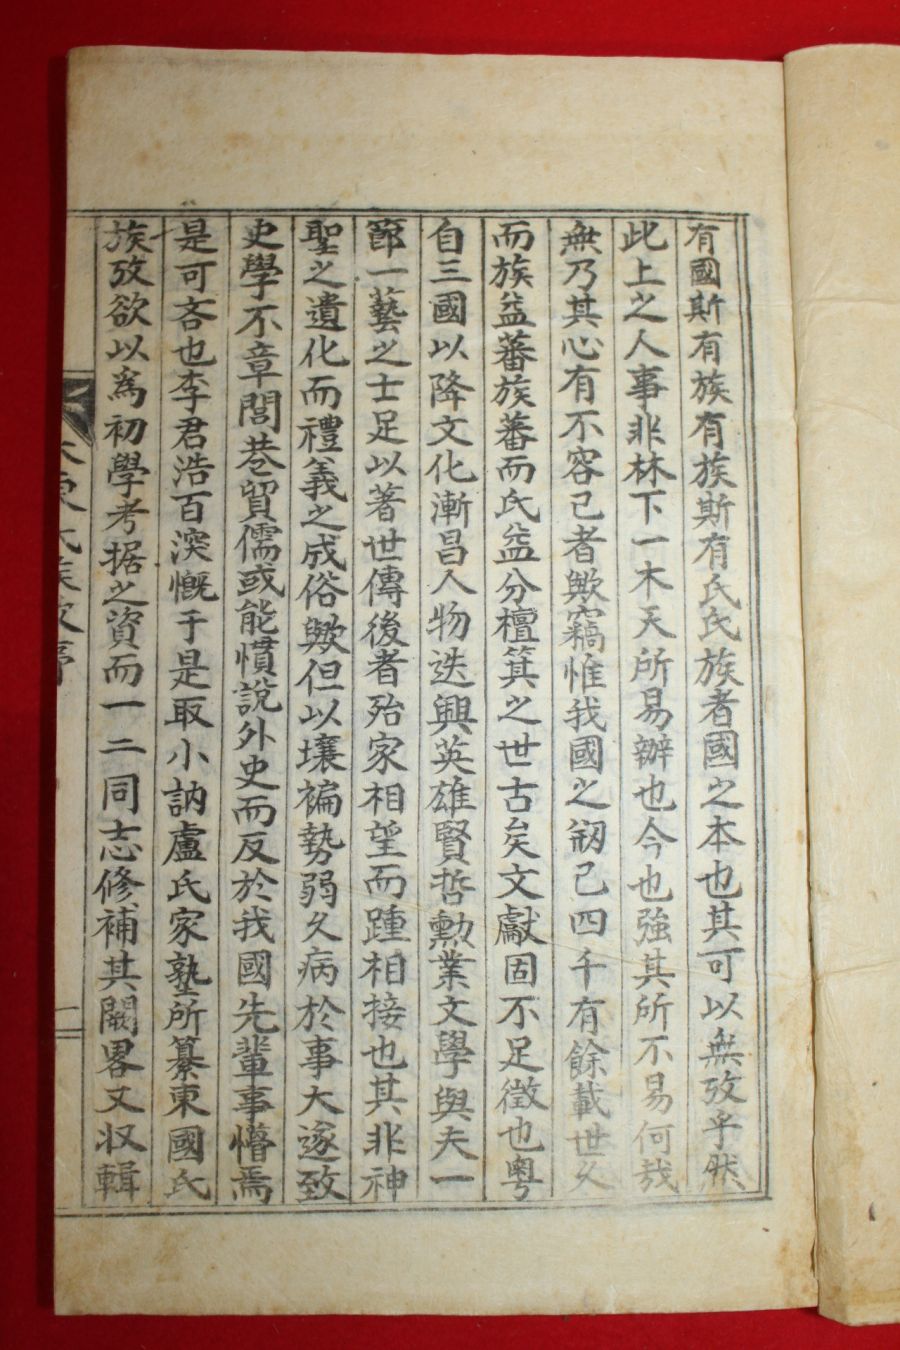 有國斯有族有族斯有氏氏族者國之本也其可以無攷乎然
此上之人事非林下一木天所易辦也今也強其所不易何哉
無乃其心有不容已者歟竊惟我國之刱已四千有餘載世久
而族益蕃族蕃而氏益分檀箕之世古矣文獻固不足徵也粵
自三國以降文化漸昌人物迭興英雄賢哲勳業文學與夫一
節一藝之士足以著世傳後者殆家相望而踵相接也其非神
聖之遺化而禮義之成俗歟但以壤褊勢弱久病於事大遂致
史學不章閭巷貿儒或能慣說外史而反於我國先輩事懵焉
是可吝也李君浩百深慨于是取小訥盧氏家塾所纂東國氏
族攷欲以爲初學考据之資而一二同志修補其闕畧又収輯
氏族攷序